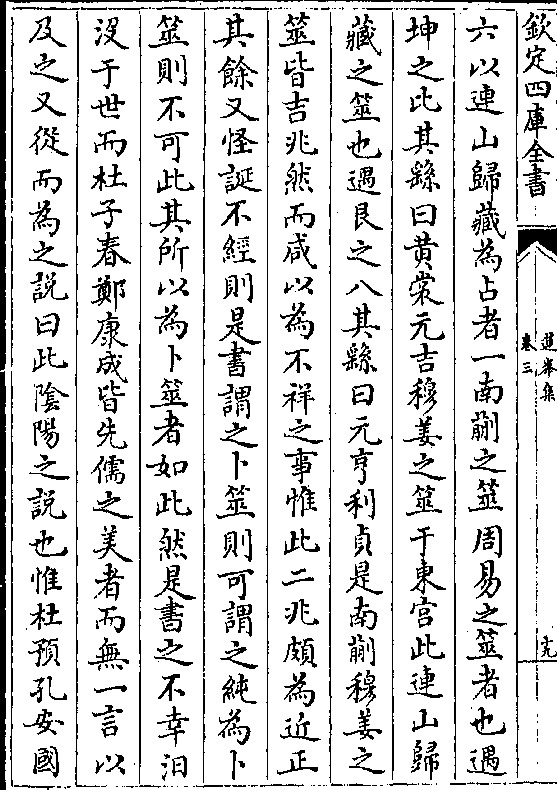 欽定四庫全書
蓮峯集
卷三
六以連山歸藏為占者一南蒯之筮周易之筮者也遇
坤之比其繇曰黃裳元吉穆姜之筮于東宮此連山歸
藏之筮也遇艮之八其繇曰元亨利貞是南蒯穆姜之
筮皆吉兆然而咸以為不祥之事惟此二兆頗為近正
其餘又怪誕不經則是書謂之卜筮則可謂之純為卜
筮則不可此其所以為卜筮者如此然是書之不幸汩
沒于世而杜子春鄭康成皆先儒之美者而無一言以
及之又從而為之說曰此陰陽之說也惟杜預孔安國